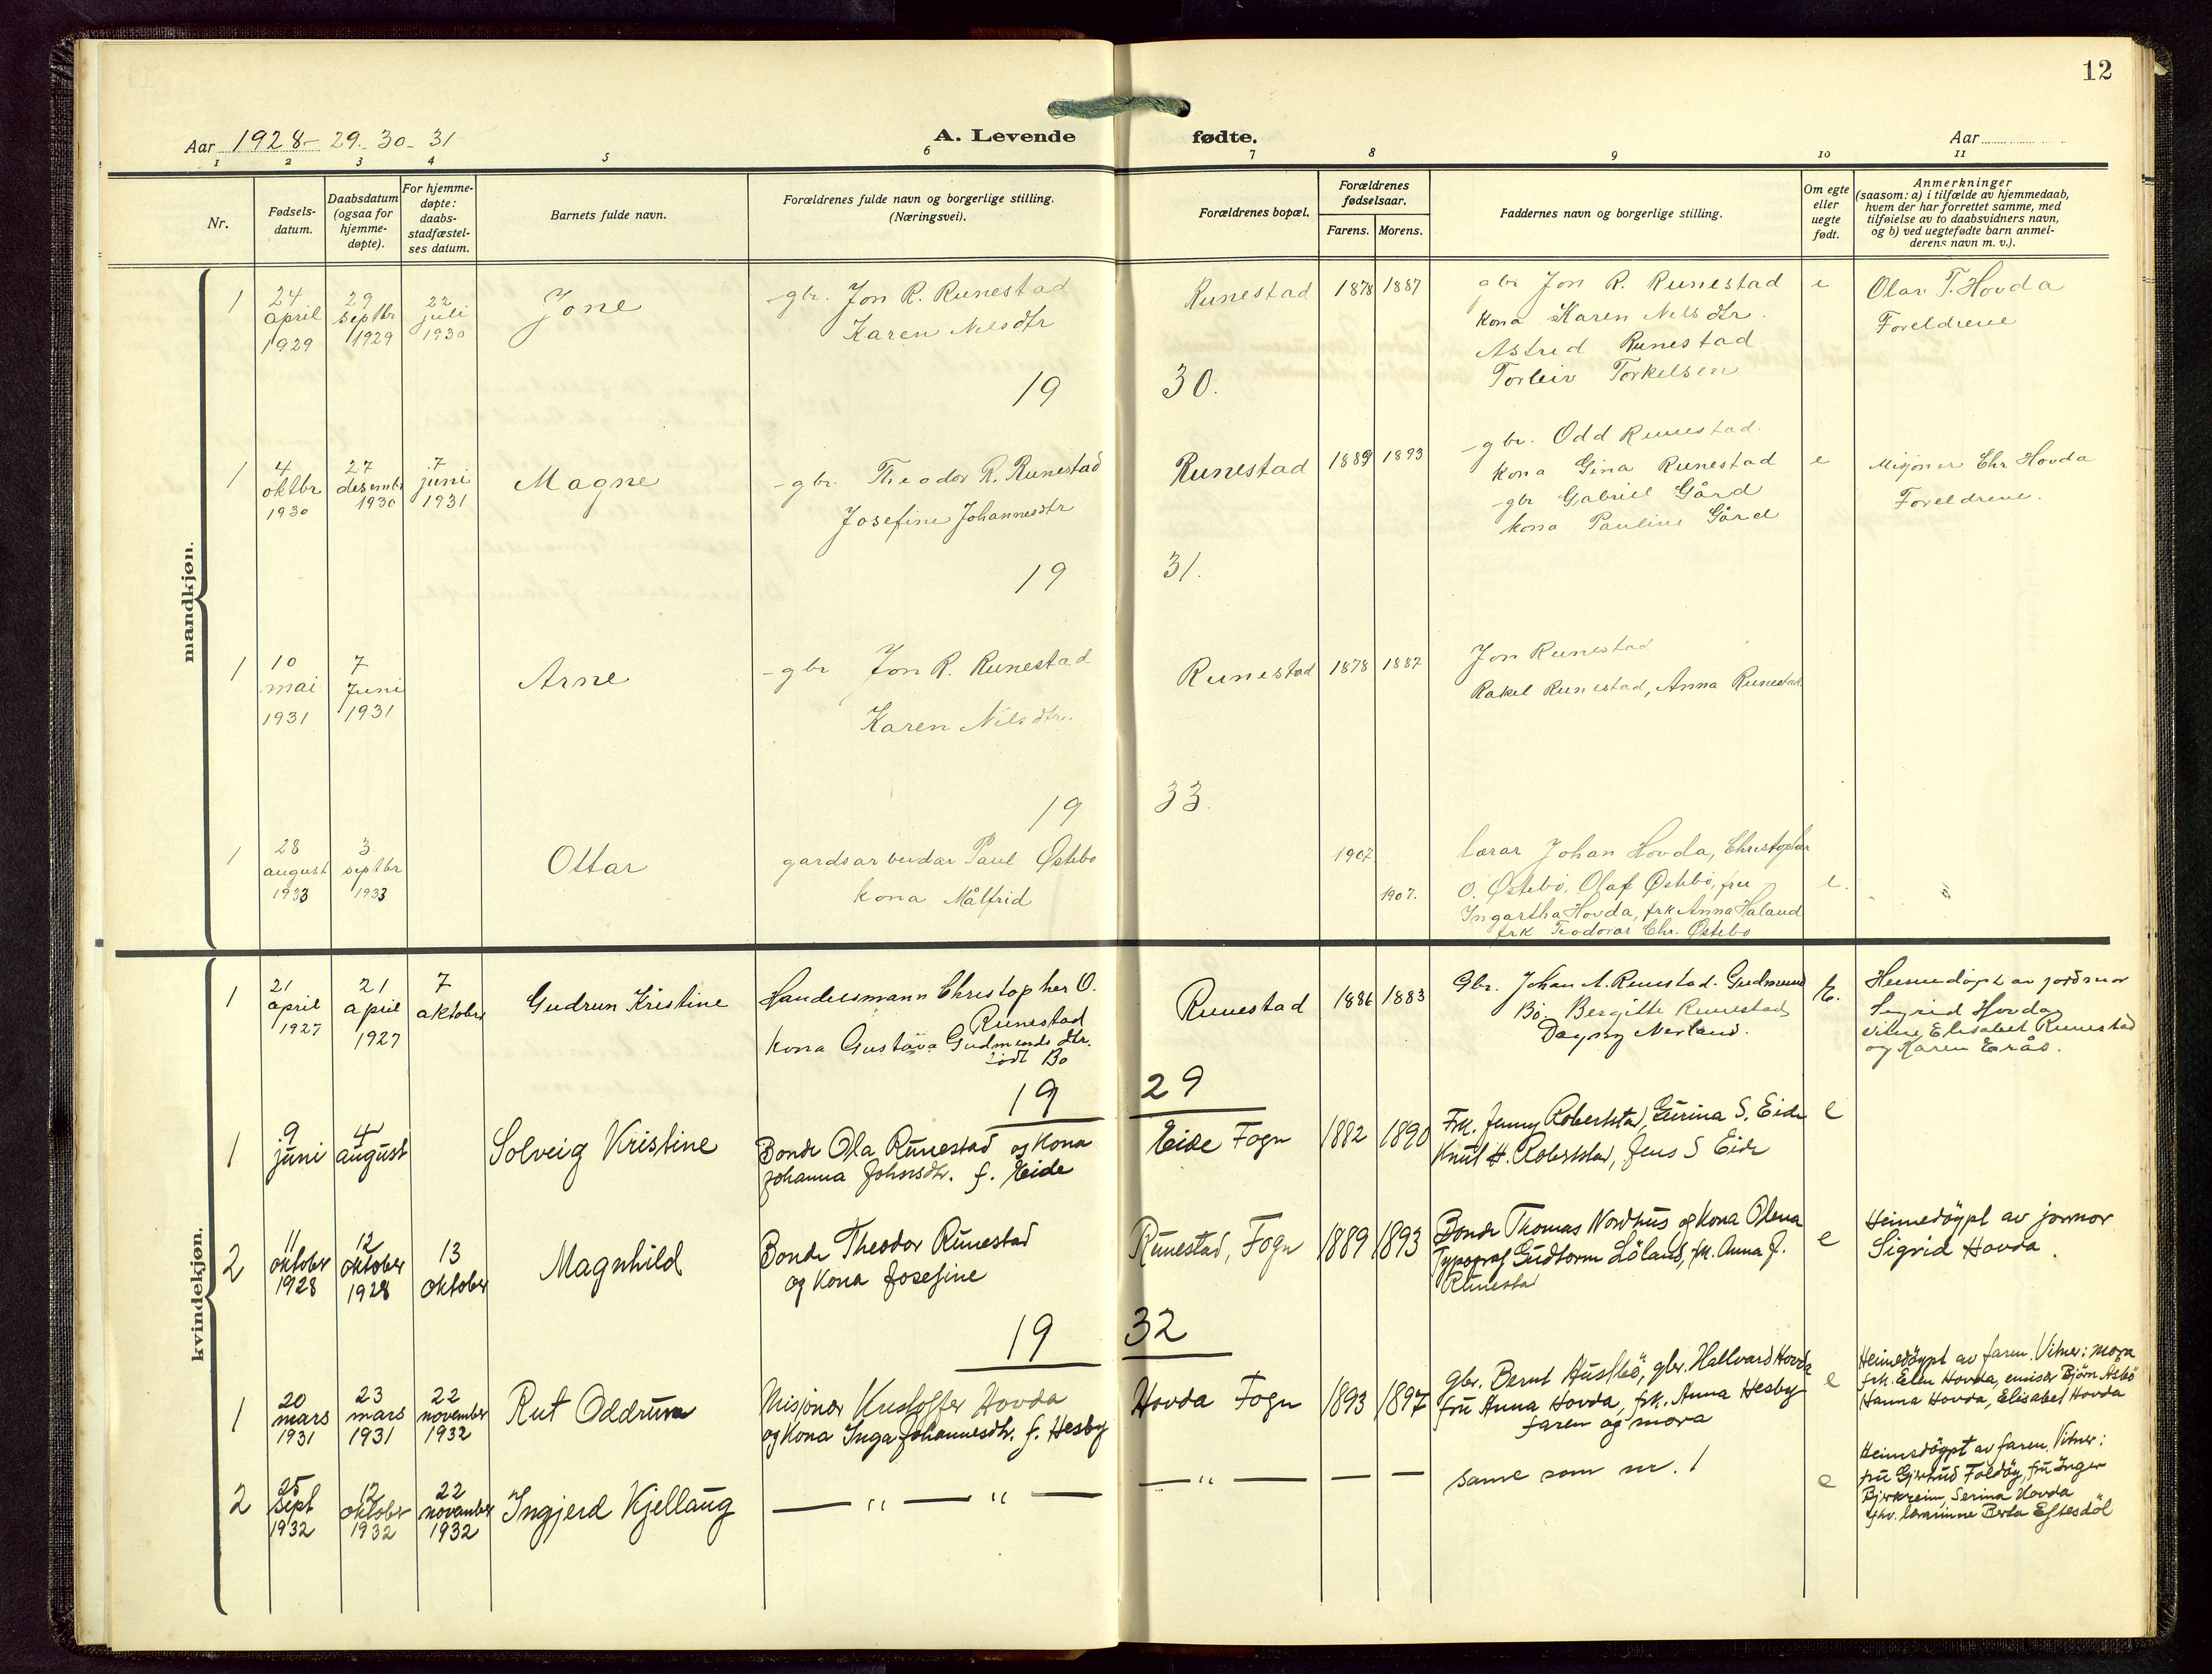 12
Aar 1928- 29. 30- 31
A. Levende fødte.
Aar
1 2 3 4 5 6 7 8 9 10 11
Nr.
Fødsels-
datum.
Daabsdatum
(ogsaa for
hjemme-
døpte).
For hjemme-
døpte:
daabs-
stadfæstel-
ses datum.
Barnets fulde navn.
Forældrenes fulde navn og borgerlige stilling.
(Næringsvei).
Forældrenes bopæl.
Forældrenes
fødselsaar.
Farens. Morens.
Faddernes navn og borgerlige stilling.
Om egte
eller
uegte
født.
Anmerkninger
(saasom: a) i tilfælde av hjemmedaab,
hvem der har forrettet samme, med
tilføielse av to daabsvidners navn,
og b) ved uegtefødte barn anmel-
derens navn m. v.).
mandkjøn.
1
24
april
1929
29
septbr
1929
22
juli
1930
Jone
gbr. Jon R. Runestad
Karen Nilsdtr
Runestad
1878 1887
gbr Jon R. Runestad
kona Karen Nilsdtr.
Astrid Runestad
Torleiv Torkelsen
e
Olav T. Hovda
Foreldrene
19 30.
1
4
oktbr
1930
27
desembr
1930
7
juni
1931
Magne
gbr. Theodor R. Runestad
Josefine Johannesdtr
Runestad
1889 1893
gbr. Odd Runestad.
kona Gina Runestad
gbr Gabriel Gård
kona Pauline Gård
e
Misjonær Chr Hovda
Foreldrene.
19 31.
1
10
mai
1931
7
Juni
1931
Arne
gbr Jon R. Runestad
Karen Nilsdtr.
Runestad
1878 1887
Jon Runestad
Rakel Runestad, Anna Runestad
19 33.
1
28
august
1933
3.
septbr
1933
Ottar
gardsarbeidar Paul Østebø
kona Målfrid
1907.
1907.
lærar Johan Hovda, Christopher
O. Østebö, Olaf Østebö, fru
Ingartha Hovda, frk Anna Haland
frk Teodorar Chr. Østebö
e.
"
kvindekjøn.
1
21
april
1927
21
april
1927
7
oktober
Gudrun Kristine
Handelsmann Christopher O.
Runestad
kona Gustava Gudmundsdtr.
født Bö
Runestad
1886 1883
Gbr. Johan A. Runestad. Gudmund
Bö. Bergitte Runestad
Dagny Nerland.
E.
Heimedöpt av jordmor
Sigrid Hovda
vitne Elisabet Runestad
og Karen Erås.
19 29
1
9
juni
4
august
Solveig Kristine
Bonde Ola Runestad og kona
Johanna Johnsdtr. f. Eide
Eide Fogn
1882 1890
Frk. Jenny Roberkstad, Gurina S. Eide
Knut H. Roberkstad, Jens S Eide
e
2
11
oktober
1928
12
oktober
1928
13
oktober
Magnhild
Bonde Theodor Runestad
og kona Josefine
Runestad, Fogn
1889 1893
Bonde Thomas Nordhus og kona Olena
Typograf Gudtorm Löland, frk. Anna J.
Runestad
e
Heimedöypt av jormor
Sigrid Hovda.
19 32
1
20
mars
1931
23
mars
1931
22
november
1932
Rut Oddrun
Misjonær Kristoffer Hovda
og kona Inga Johannesdtr. f. Hesby
Hovda Fogn
1893 1897
gbr. Bernt Austbö, gbr. Hallvard Hovda
fru Anna Hovda, frk. Anna Hesby
faren og mora
e
Heimedöypt av faren. Vitner: mora
frk. Elen Hovda, emisær Björn Asbö
Hanna Hovda, Elisabet Hovda
2
25
sept
1932
12
oktober
1932
22
november
1932
Ingjerd Kjellaug
— " — " —
— " — — —
same som nr. 1
e
Heimedöypt av faren. Vitner:
fru Gjertrud Foldöy, fru Inger
Bjerkreim, Serina Hovda
ghv. lærarinne Berta Eftesdöl